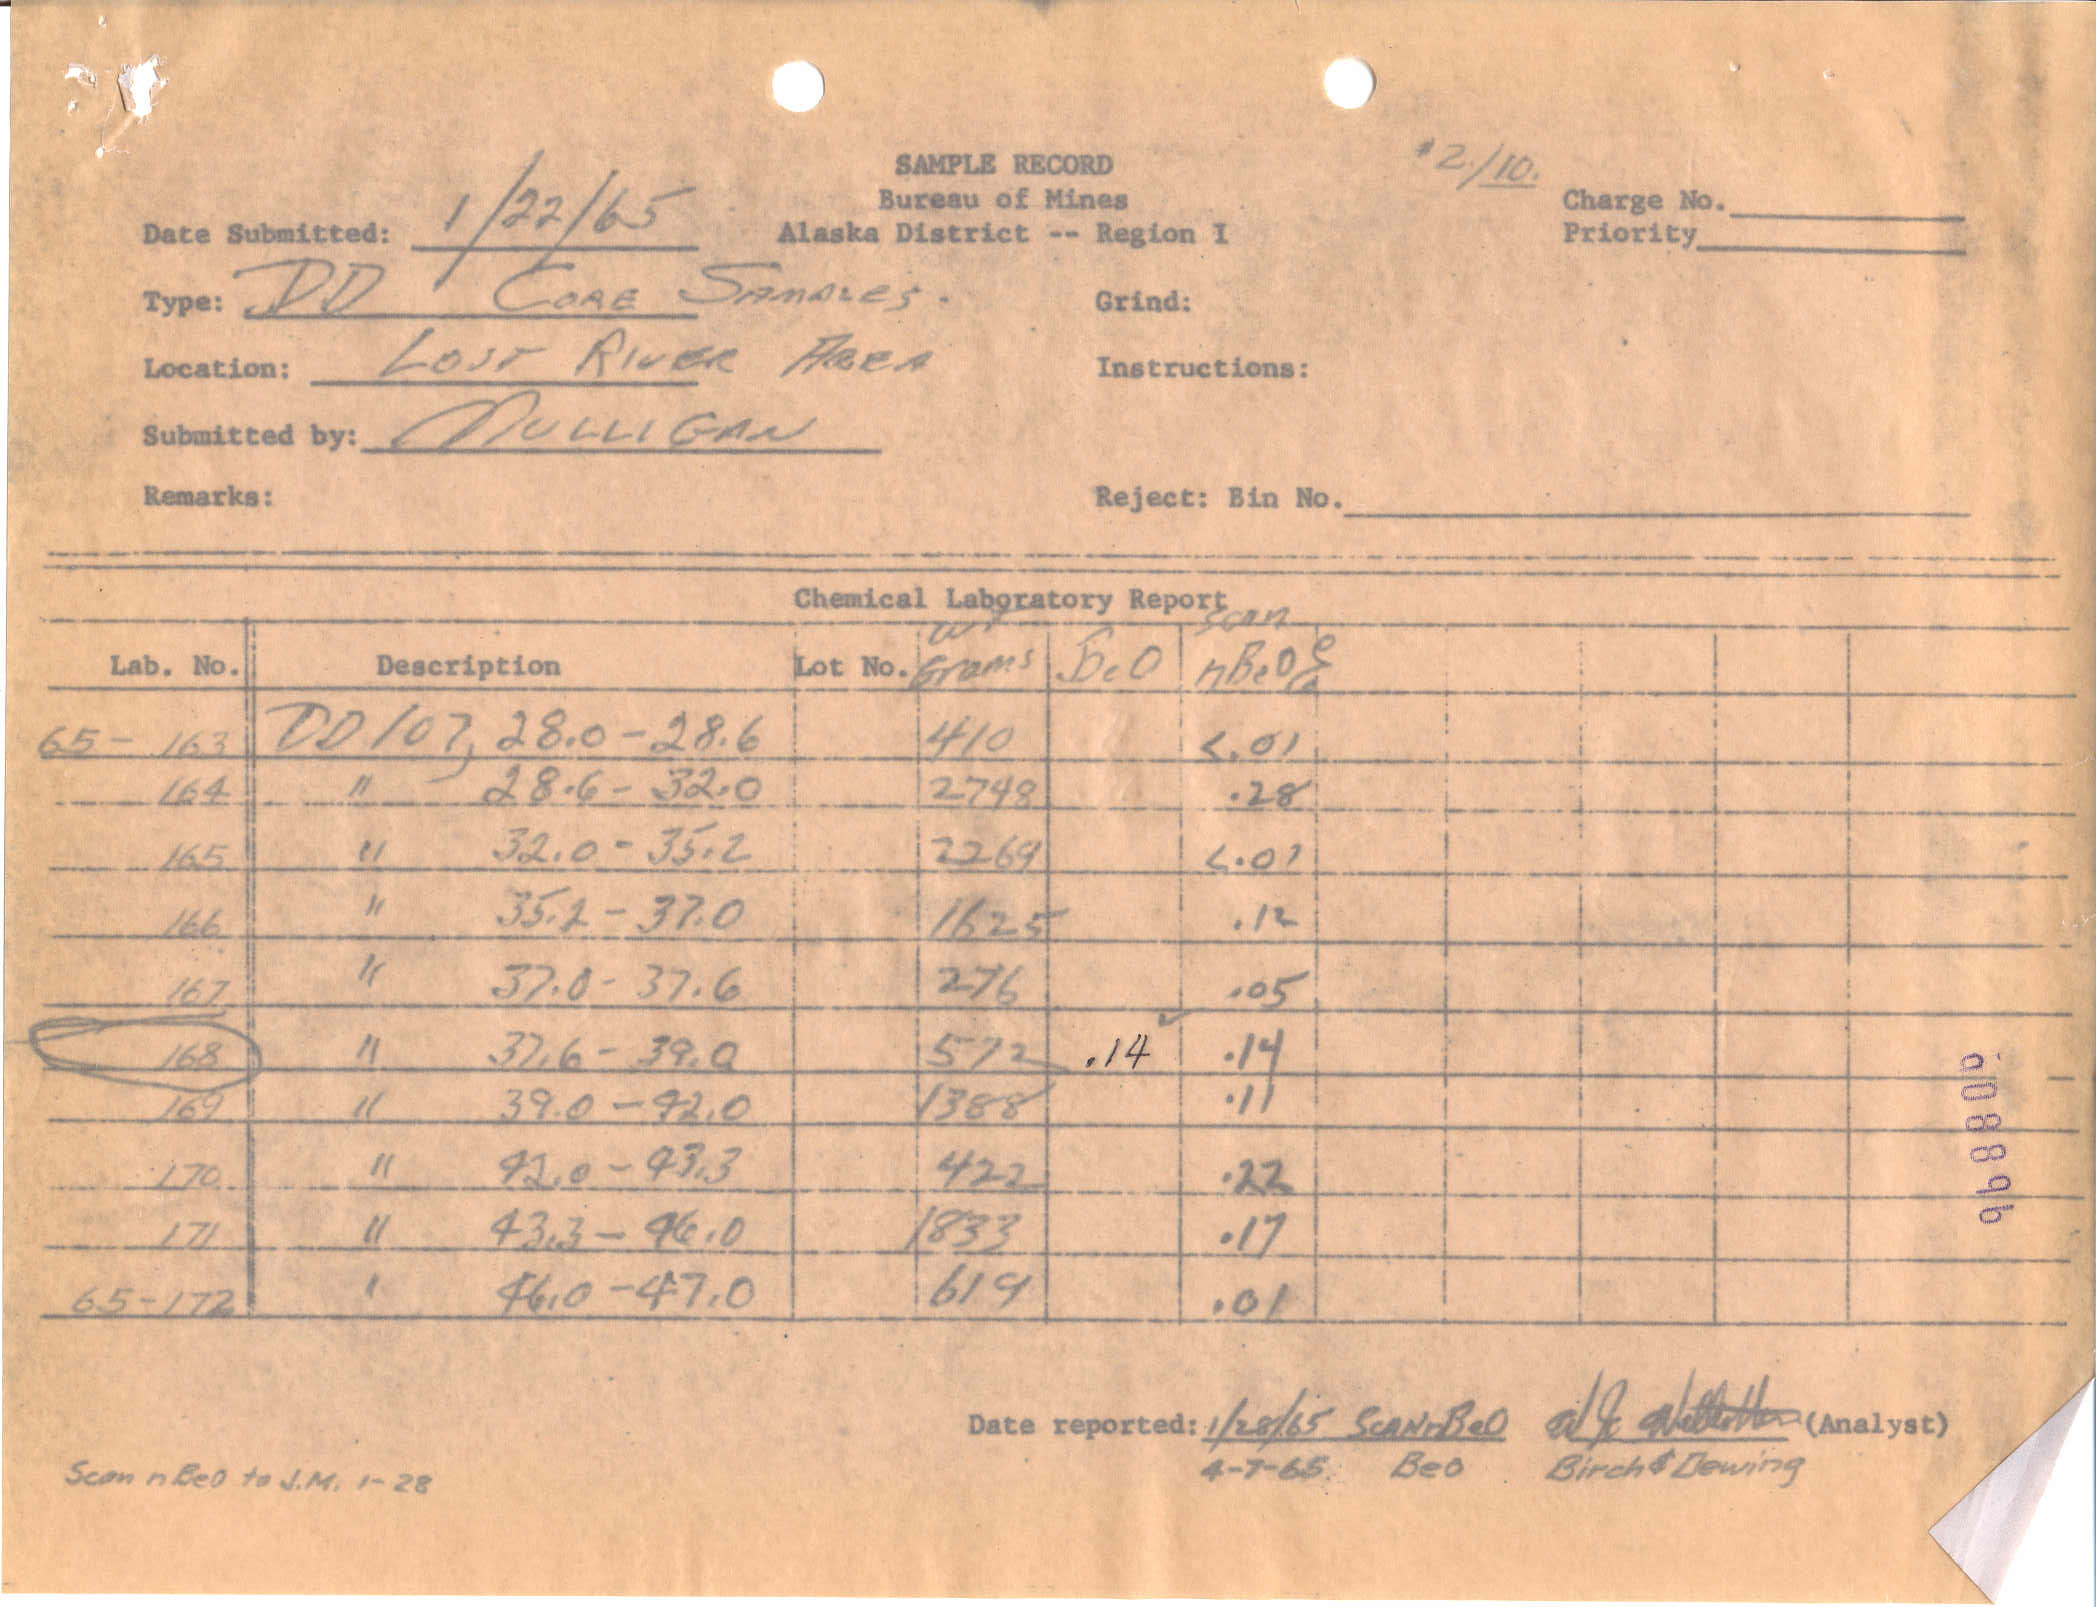 SAMPLE RECORD
#2./10.
Bureau of Mines
Charge No.
Date Submitted: 1/22/65
Alaska District -- Region I
Priority
Type: DD CORE SAMPLES.
Grind:
Location: LOST RIVER AREA
Instructions:
Submitted by: MULLIGAN
Remarks:
Reject: Bin No.
Chemical Laboratory Report
Lab. No. Description Lot No. wt Grams BeO scan nBeO
65- 163 DD 107, 28.0-28.6 410 <.01
164 " 28.6-32.0 2748 .28
165 " 32.0-35.2 2269 <.01
166 " 35.2-37.0 1625 .12
167 " 37.0-37.6 276 .05
168 " 37.6-39.0 572 .14 ✓ .14
169 " 39.0-42.0 1388 .11
170 " 42.0-43.3 422 .22
171 " 43.3-46.0 1833 .17
65-172 " 46.0-47.0 619 .01
Date reported: 1/28/65 SCAN nBeO (Analyst)
4-7-65 BeO Birch & Dewing
Scan nBeO to J.M. 1-28